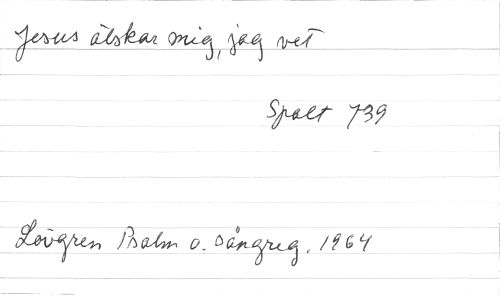 Jesus älskar mig, jag vet
Spalt 739
Lövgren Psalm o. Sångreg. 1964